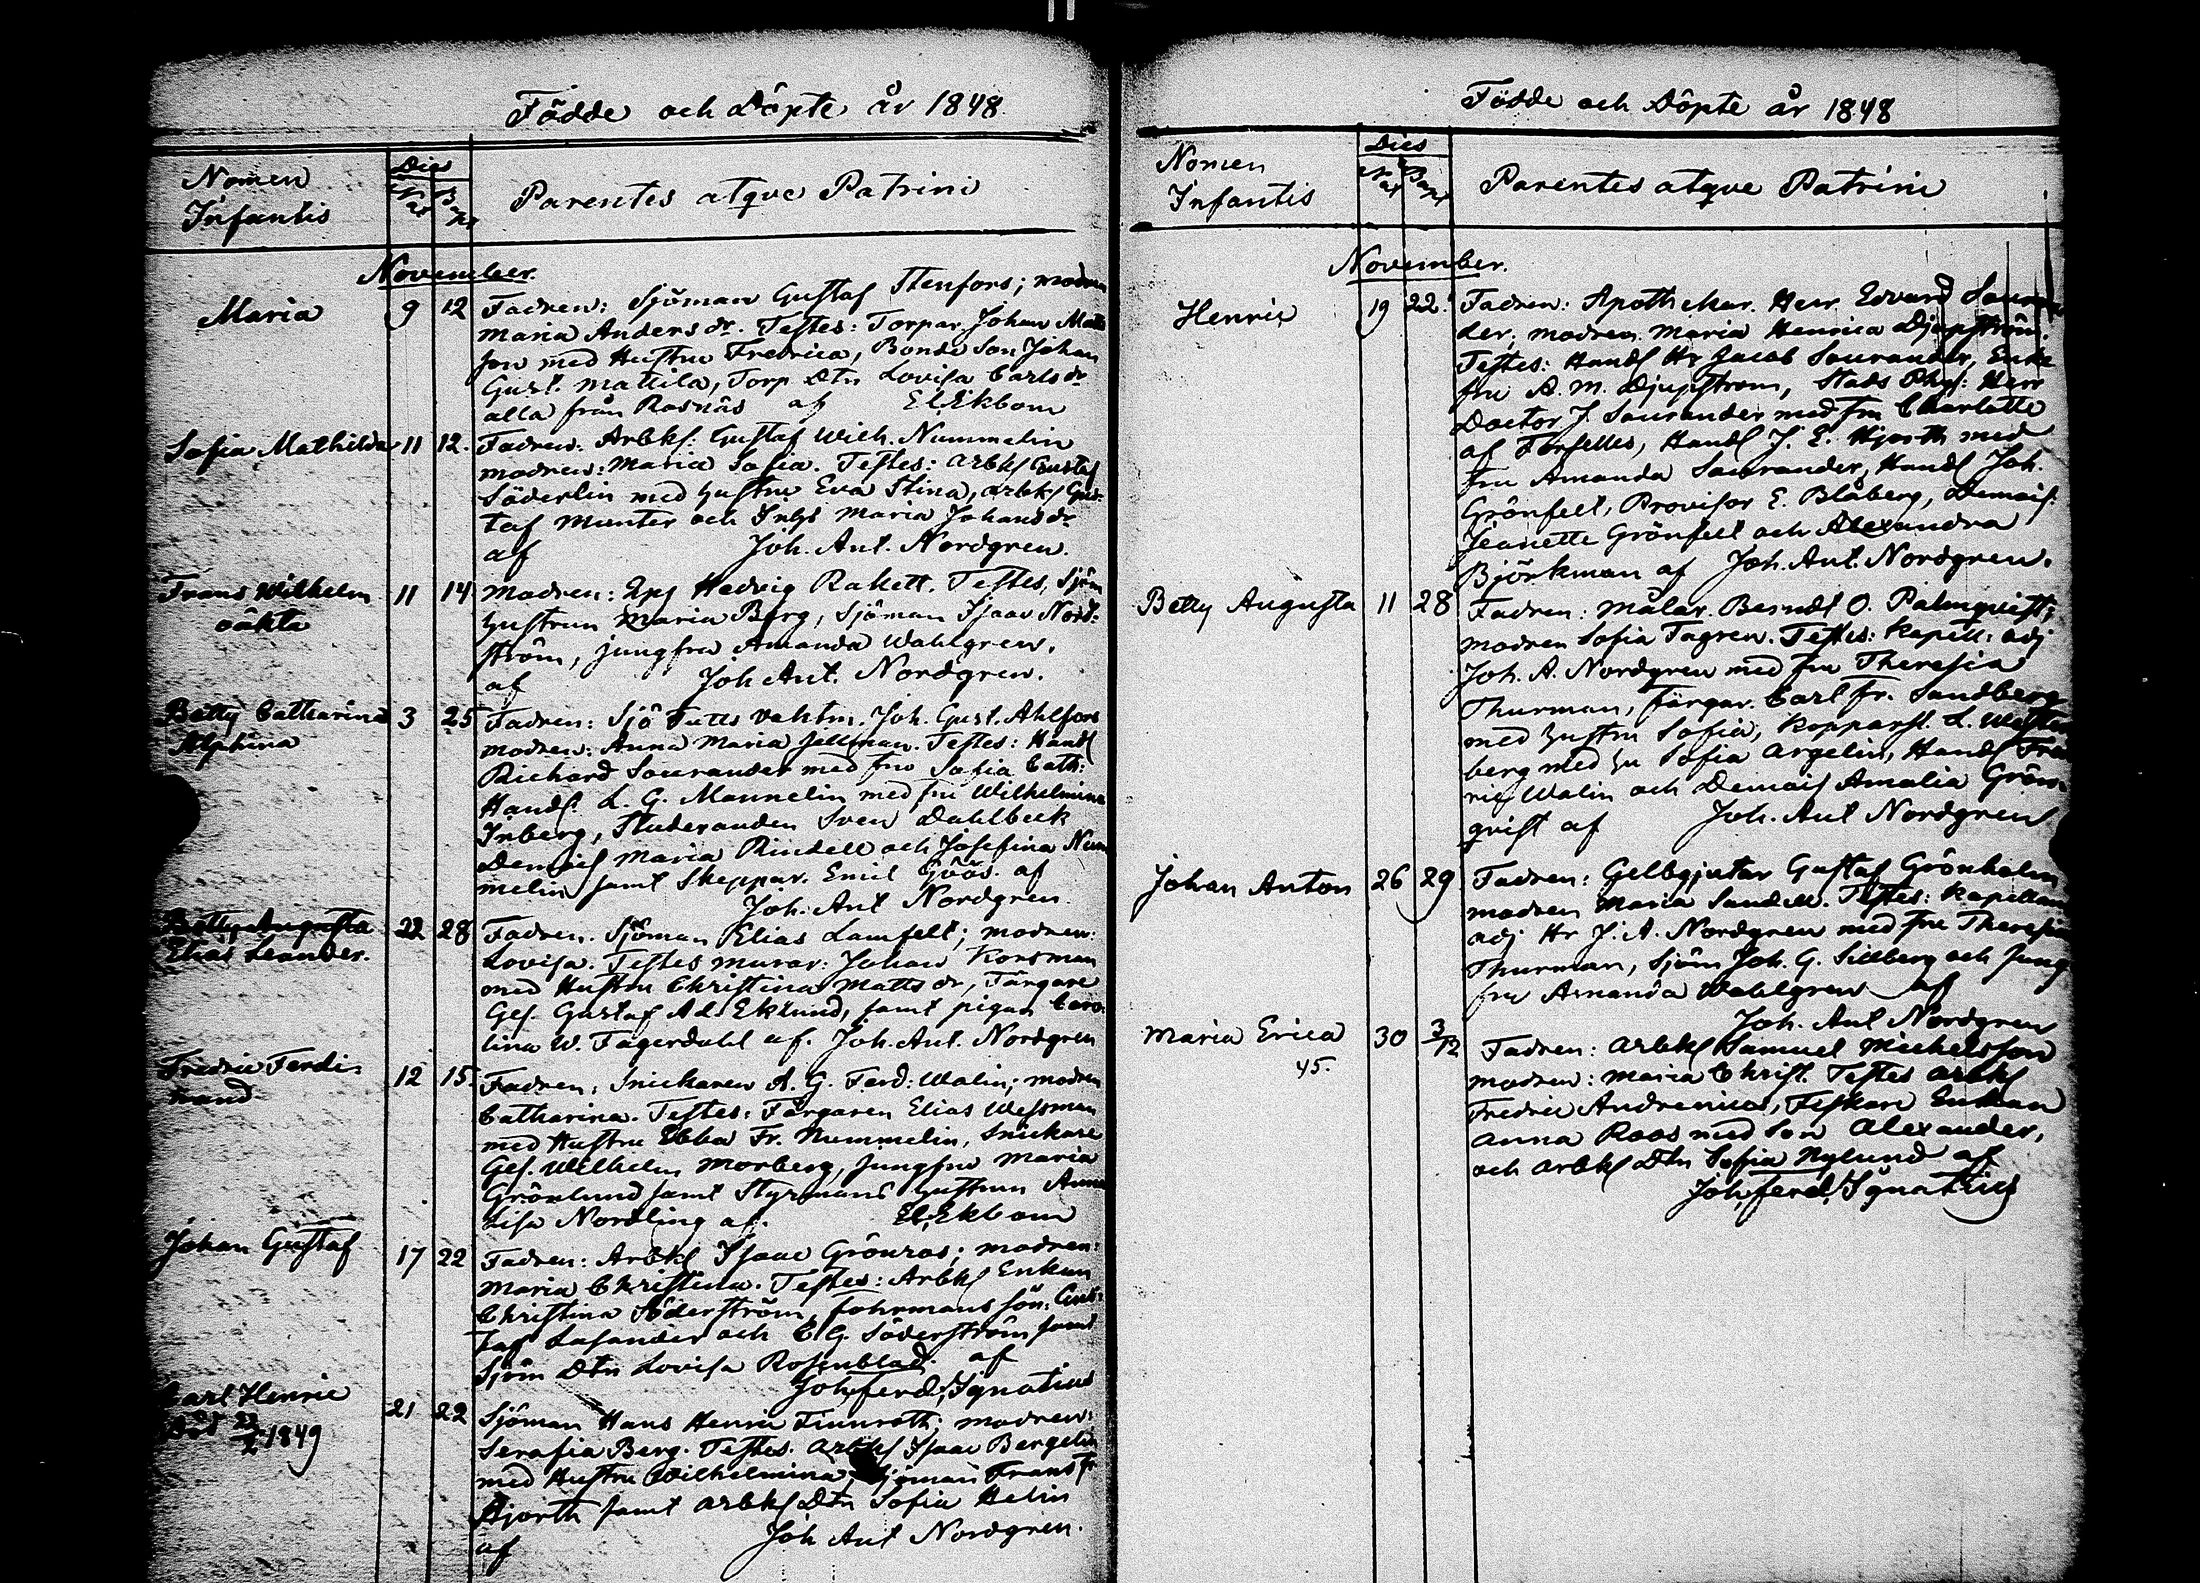 Födde och Döpte år 1848
Nomen Infantis
Dies
Nat Bapt
Parentes atqve Patrini
November.
Maria 9 12 Fadren: Sjöman Gustaf Stenfors; modren
Maria Anders dr. Testes: Torpar. Johan Matts
son med Hustru Fredrica, Bonde Son Johan
Gust. Mattila, Torp Dtn Lovisa Carls dr
alla från Rasnäs af El. Ekbom
Sofia Mathilda 11 12. Fadren: Arbks: Gustaf Wilh. Nummelin
modren: Maria Sofia. Testes: Arbks Gustaf
Söderlin med Hustru Eva Stina, arbks Gus-
taf Munter och Inhs Maria Johans dr
af Joh. Ant. Nordgren.
Frans Wilhelm 11 14 Modren: Hedvig Rakett. Testes, Sjöm
oäkta
Hustrun Maria Berg, Sjöman Isaac Nord-
ström, jungfru Amanda Wahlgren.
af Joh Ant. Nordgren.
Betty Catharina 3 25 Fadren: Sjö Tulls vaktm. Joh. Gust. Ahlfors
Alphina
modren: Anna Maria Jellman. Testes: Handl
Richard Sourander med fru Sofia Cath:
Handl. L. G. Mannelin med fru Wilhelmina
Inberg, Studeranden Sven Dahlbeck
Demois Maria Rindell och Josefina Num
melin samt Skeppar. Emil Göös. af
Joh. Ant Nordgren.
Betty Augusta 22 28 Fadren. Sjöman Elias Lamfelt; modren:
Elias Leander.
Lovisa. Testes murar: Johan Korsman
med Hustru Christina Matts dr, Färgare
Ges. Gustaf Ad. Eklund, samt pigan Caro-
lina W. Fagerdahl af. Joh. Ant. Nordgren
Fredric Ferdi- 12 15. Fadren: Snickaren A. G. Ferd: Walin; modren
nand
Catharina. Testes: Färgaren Elias Wessman
med Hustru Ebba Fr. Nummelin, Snickare
Ges. Wilhelm Morberg, jungfru Maria
Grönlund samt Styrmans Hustrun Anna
Lisa Nordling af. El. Ekbom
Johan Gustaf 17 22 Fadren: Arbks Isaac Grönroos; modren:
Maria Christina. Testes: Arbks Enkan
Christina Söderström, fohrmans son: Gus-
taf Lusander och C G. Söderström samt
Sjöm Dtn Lovisa Rosenblad. af
Joh. ferd. Ignatius
Carl Henric 21 22 Sjöman Hans Henric Finnroth; modren:
Död 23/2 1849
Serafia Berg. Testes. Arbks Isaac Bergelin
med Hustru Wilhelmina, Sjöman Frans Fr
Hjorth samt arbks Dtn Sofia Helin
af Joh Ant Nordgren.
Födde och Döpte år 1848
Nomen Infantis
Dies
Nat Bapt
Parentes atqve Patrini
November.
Henric 19 22. Fadren: Apothekar. Herr Edvard Souran
der; modren. Maria Henrica Djupström
Testes: Handl Hr Jacob Sourander, Enke
fru A. M. Djupström, Stads Phys: Herr
Doctor J. Sourander med fru Charlotte
af Forselles, Handl J. E. Hjorth med
fru Amanda Sourander, Handl Joh.
Grönfelt, Provisor E. Blåberg, Demois:
Jeanette Grönfelt och Alexandra
Björkman af Joh. Ant. Nordgren.
Betty Augusta 11 28 Fadren: Målar. Berndt O. Palmqvist;
modren Sofia Tagren. Testes: Kapell: adj
Joh. A. Nordgren med fru Theresia
Thurman, Färgar. Carl Fr. Sandberg
med Hustru Sofia, Kopparsl. L. Westen
berg med Hu Sofia Argelin, Handl Fred
ric Walin och Demois Amalia Grön-
qvist af Joh. Ant Nordgren
Johan Anton 26 29. Fadren: Gelbgjutar Gustaf Grönholm
modren Maria Sundell. Testes: Kapellans
adj Hr J. A. Nordgren med fru Theresia
Thurman, Sjöm Joh. G. Sillberg och Jung
fru Amanda Wahlgren af
Joh. Ant Nordgren
Maria Erica 30 3/12 Fadren: arbks Samuel Michelsson
45.
modren: Maria Christ. Testes arbks
Fredric Andrenius, Feskare Enkan
Anna Roos med Son Alexander,
och arbks Dtn Sofia Nylund af
Joh. ferd. Ignatius